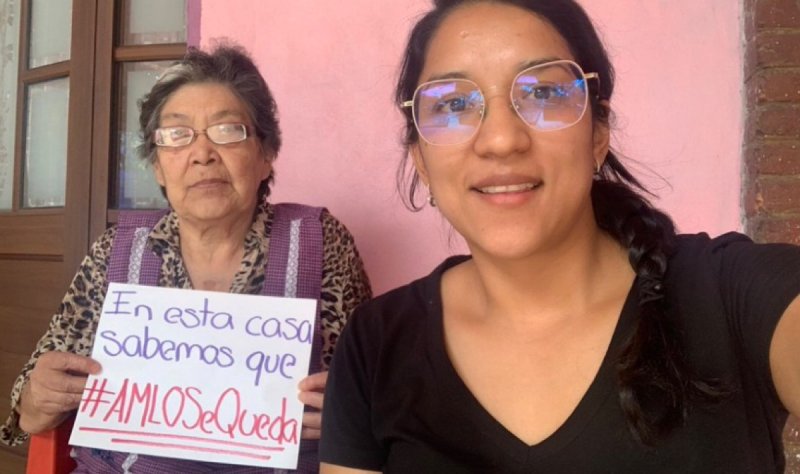 En esta casa
sabemos que
#AMLOSeQueda